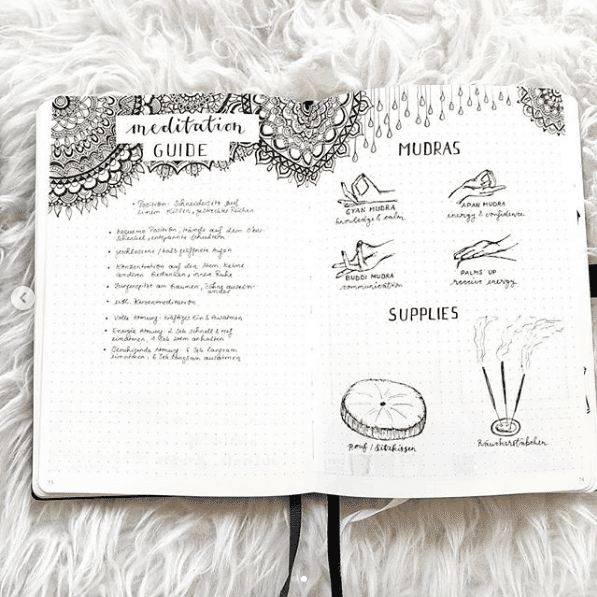 meditation
GUIDE
• Position: Schneidersitz auf
einem Kissen, gestreckter Rücken
• bequeme Position, Hände auf dem Ober-
schenkel, entspannte Schultern
• geschlossene / halb geöffnete Augen
• Konzentration auf den Atem, keine
anderen Gedanken, innere Ruhe
• Zungenspitze am Gaumen, Zähne ausein-
ander
• evtl. Kerzenmeditation
• Volle Atmung: kräftiges Ein & Ausatmen
• Energie Atmung: 2 Sek schnell & tief
einatmen, 2 Sek Atem anhalten
• Beruhigende Atmung: 6 Sek langsam
einatmen, 6 Sek langsam ausatmen
MUDRAS
GYAN MUDRA
knowledge & calm
APAN MUDRA
energy & confidence
BUDDI MUDRA
communication
PALMS UP
receive energy
SUPPLIES
Pouf / Sitzkissen
Räucherstäbchen